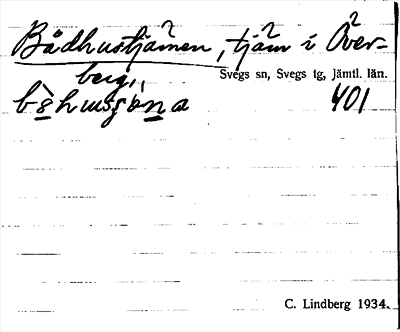 Bådhustjärnen, tjärn i Över-
berg,
Svegs sn, Svegs tg, Jämtl. län.
401
C. Lindberg 1934.